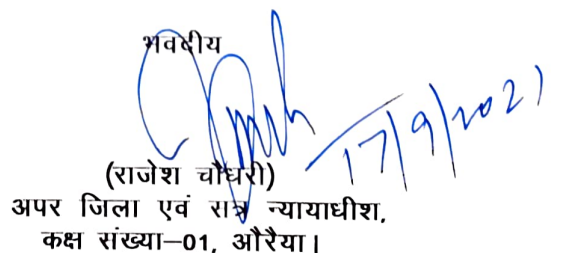 भवदीय
17/9/2021
(राजेश चौधरी)
अपर जिला एवं सत्र न्यायाधीश,
कक्ष संख्या–01, औरैया।